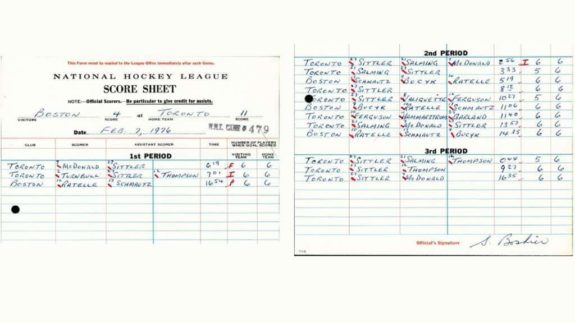 This Form must be mailed to the League Office immediately after each Game.
NATIONAL HOCKEY LEAGUE
SCORE SHEET
NOTE:—Official Scorers.—Be particular to give credit for assists.
BOSTON 4 at TORONTO 11
VISITORS SCORE HOME TEAM SCORE
Date FEB. 7, 1976 479
CLUB SCORER ASSISTANT SCORER TIME
1st PERIOD
TORONTO McDONALD SITTLER 6:19 6 6
TORONTO TURNBULL SITTLER THOMPSON 7:01 6 6
BOSTON RATELLE SCHMAUTZ 16:54 6 6
2nd PERIOD
TORONTO SITTLER SALMING McDONALD 2:56 6 6
TORONTO SALMING SITTLER 3:33 5 6
BOSTON SCHMAUTZ BUCYK RATELLE 5:19 6 6
TORONTO SITTLER 8:12 6 6
TORONTO SITTLER VALIQUETTE FERGUSON 10:27 5 6
BOSTON BUCYK RATELLE SCHMAUTZ 11:06 6 6
TORONTO FERGUSON HAMMARSTROM GARLAND 11:40 6 6
TORONTO SALMING McDONALD SITTLER 13:57 6 6
BOSTON RATELLE SCHMAUTZ BUCYK 14:35 6 6
3rd PERIOD
TORONTO SITTLER SALMING THOMPSON 0:44 5 6
TORONTO SITTLER THOMPSON 9:27 6 6
TORONTO SITTLER McDONALD 16:35 6 6
Official's Signature